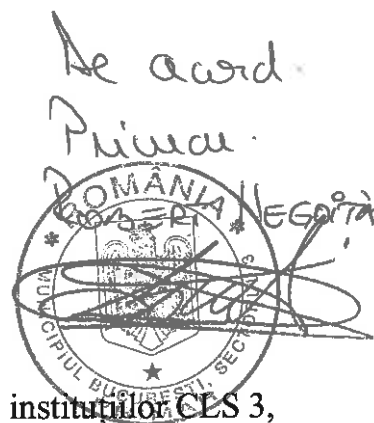 De acord.
Primar.
ROBERT NEGOIȚĂ
ROMÂNIA
MUNICIPIUL BUCUREȘTI, SECTORUL 3
instituțiilor CLS 3,